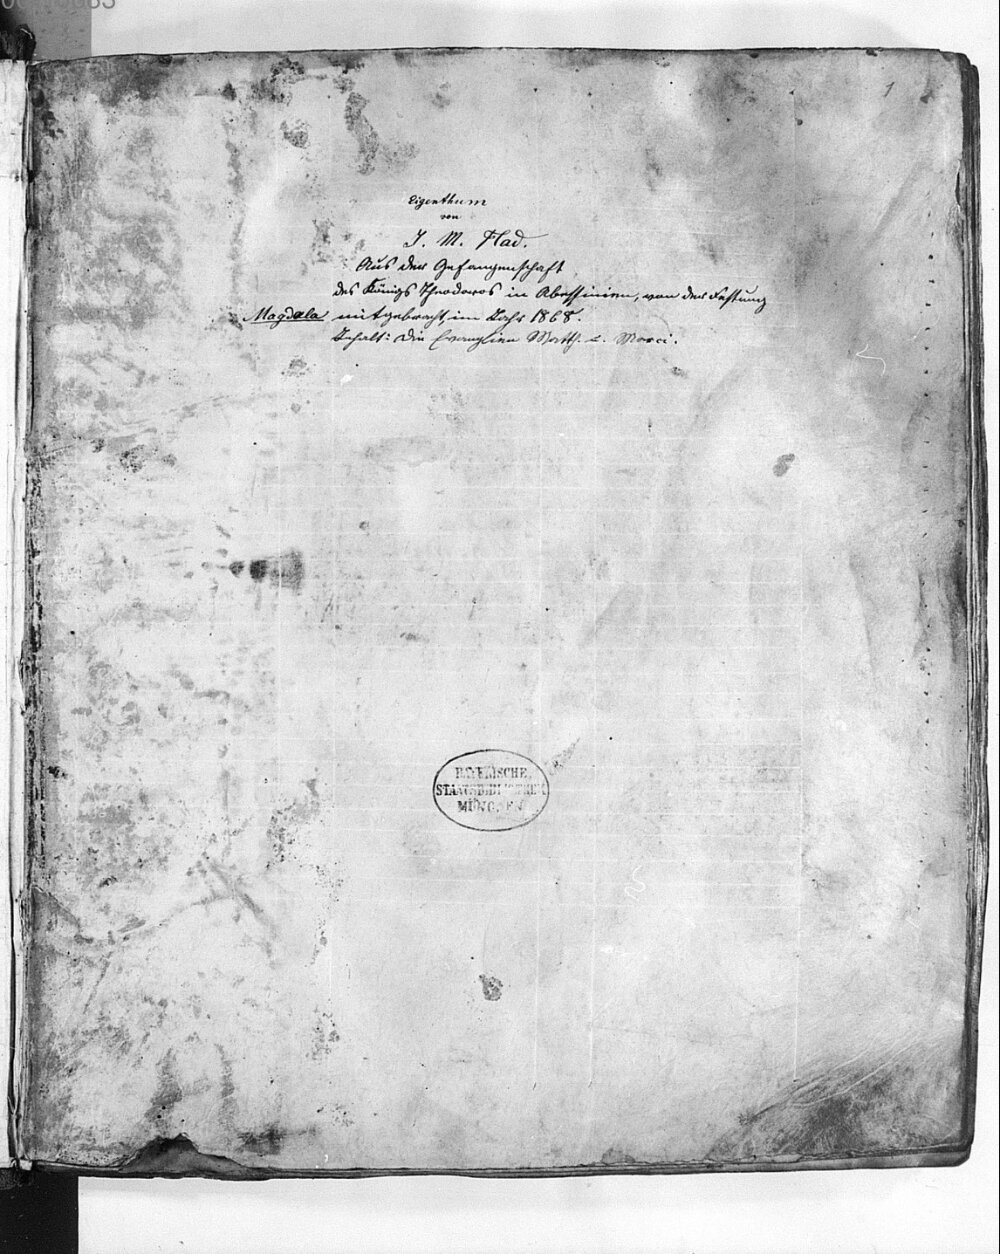 1
Eigenthum
von
J. M. Flad.
Aus der Gefangenschaft
des Königs Theodoros in Abessinien, von der Festung
Magdala mitgebracht, im Jahr 1868.
Inhalt: Die Evanglien Matth. u. Marci.
BAYERISCHE
STAATSBIBLIOTHEK
MÜNCHEN